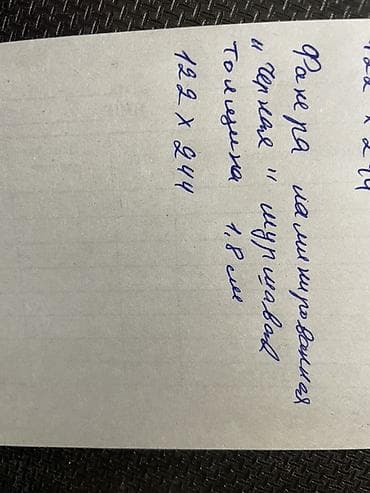 122 x 244
Фанера ламинированная
"черная" шуршавая
толщина 1,8 см
122 x 244